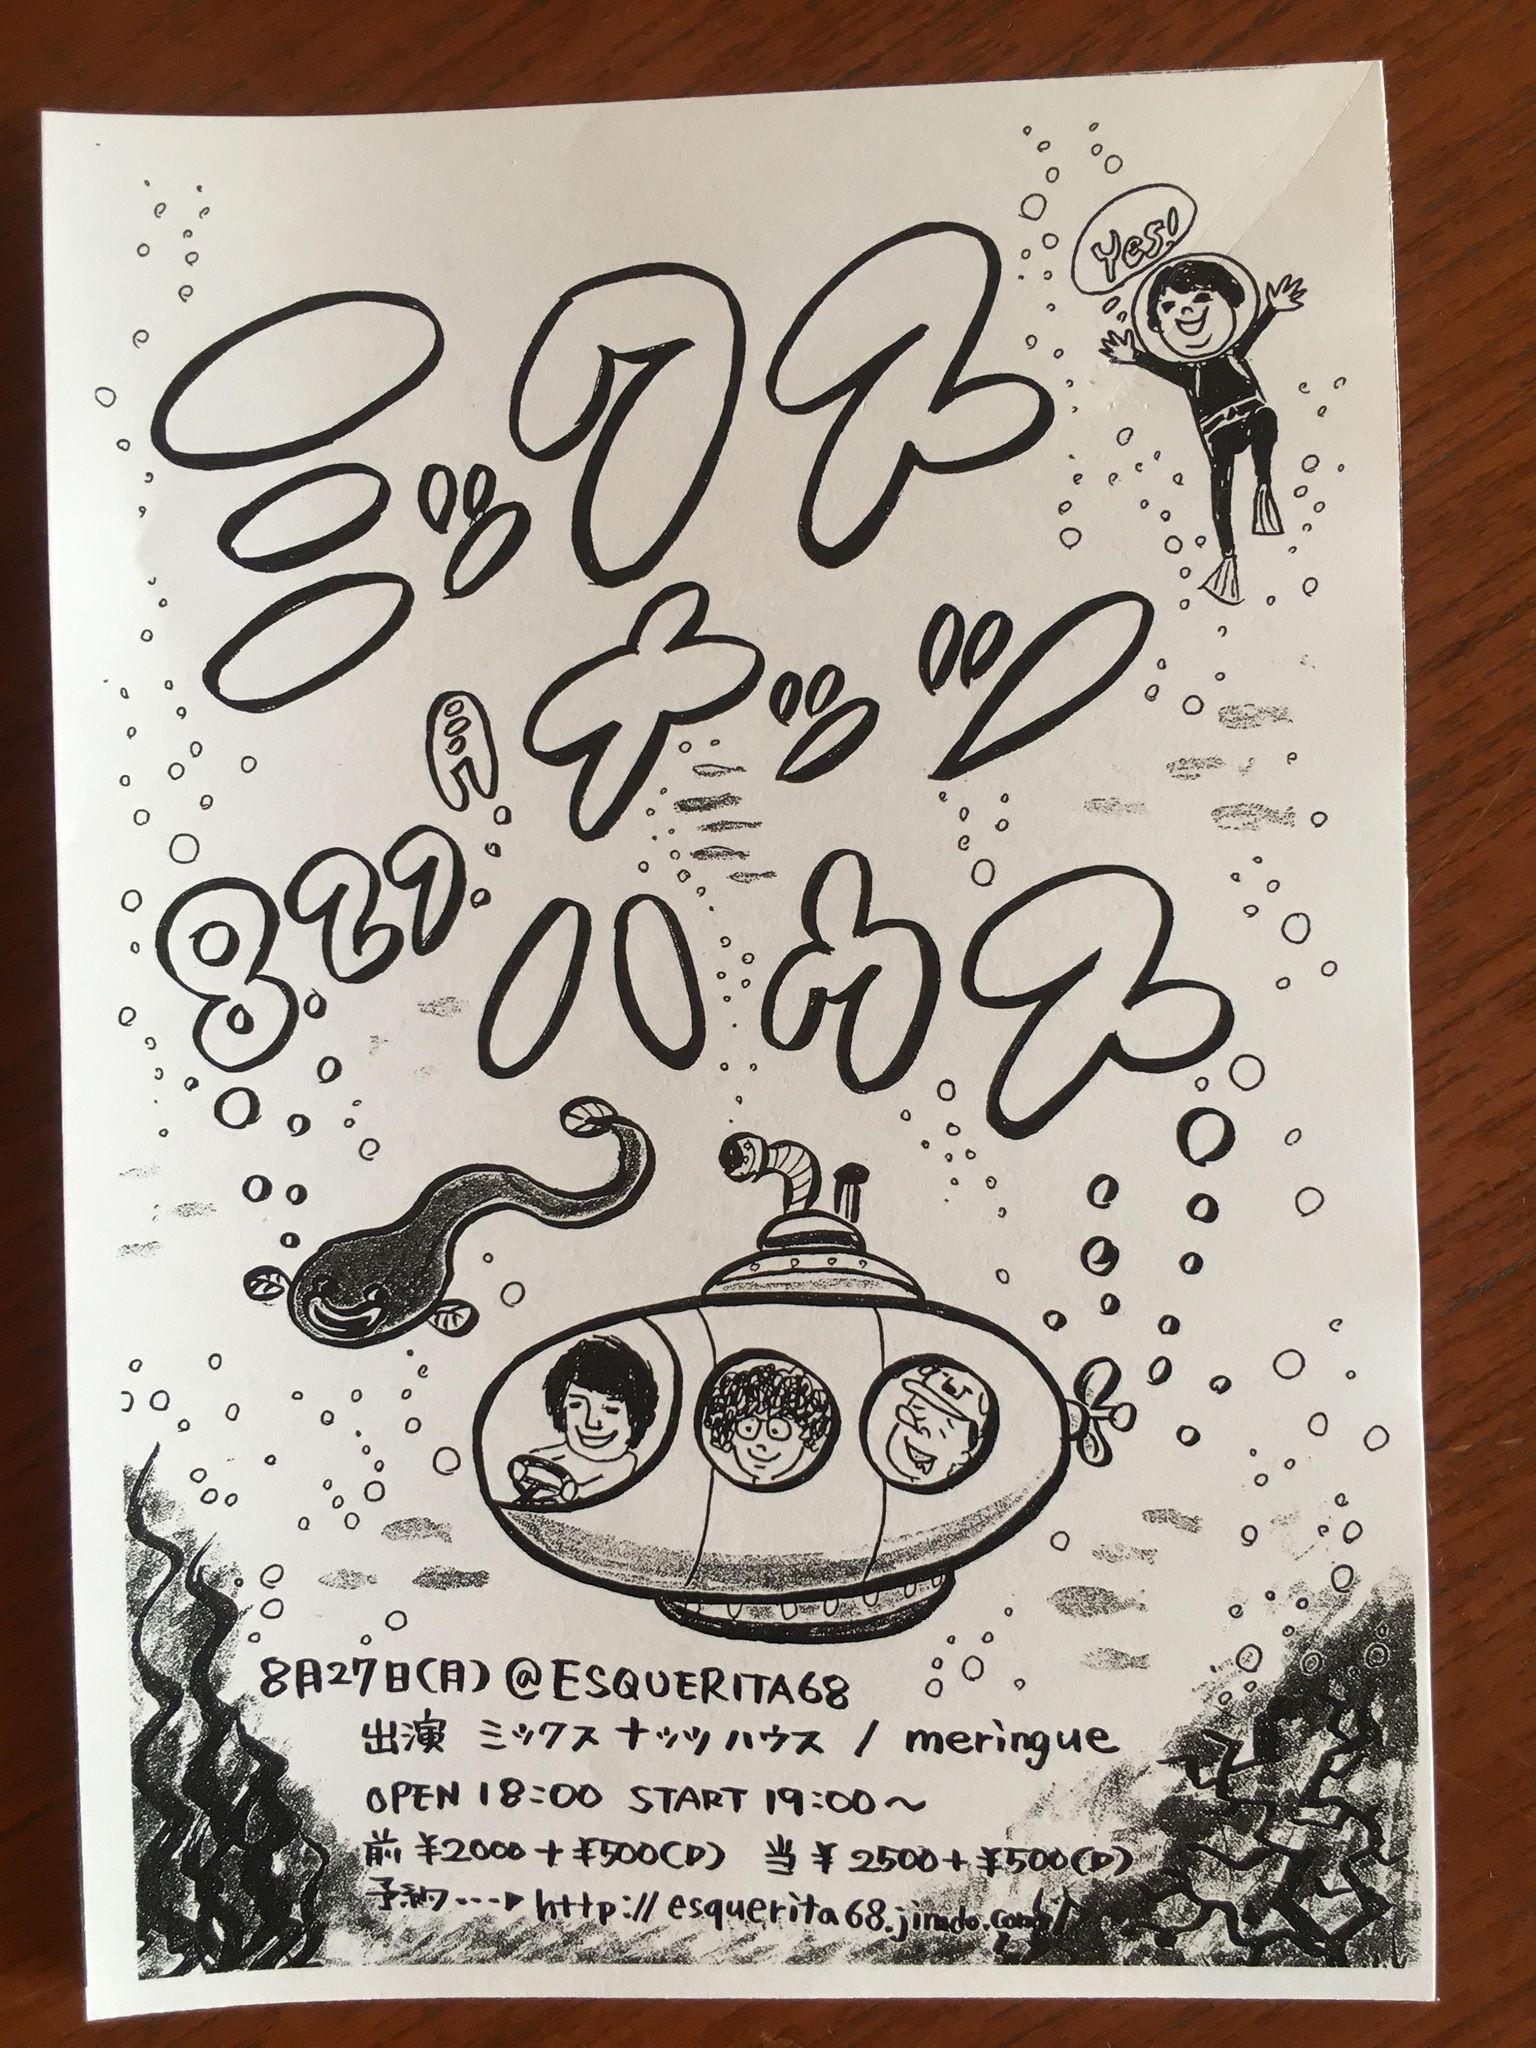 Yes!
ミックス
ナッツ
ハウス
827
8月27日(月)@ESQUERITA68
出演 ミックスナッツハウス / meringue
OPEN 18:00 START 19:00〜
前 ¥2000+¥500(D) 当 ¥2500+¥500(D)
予約---▶http://esquerita68.jimdo.com/